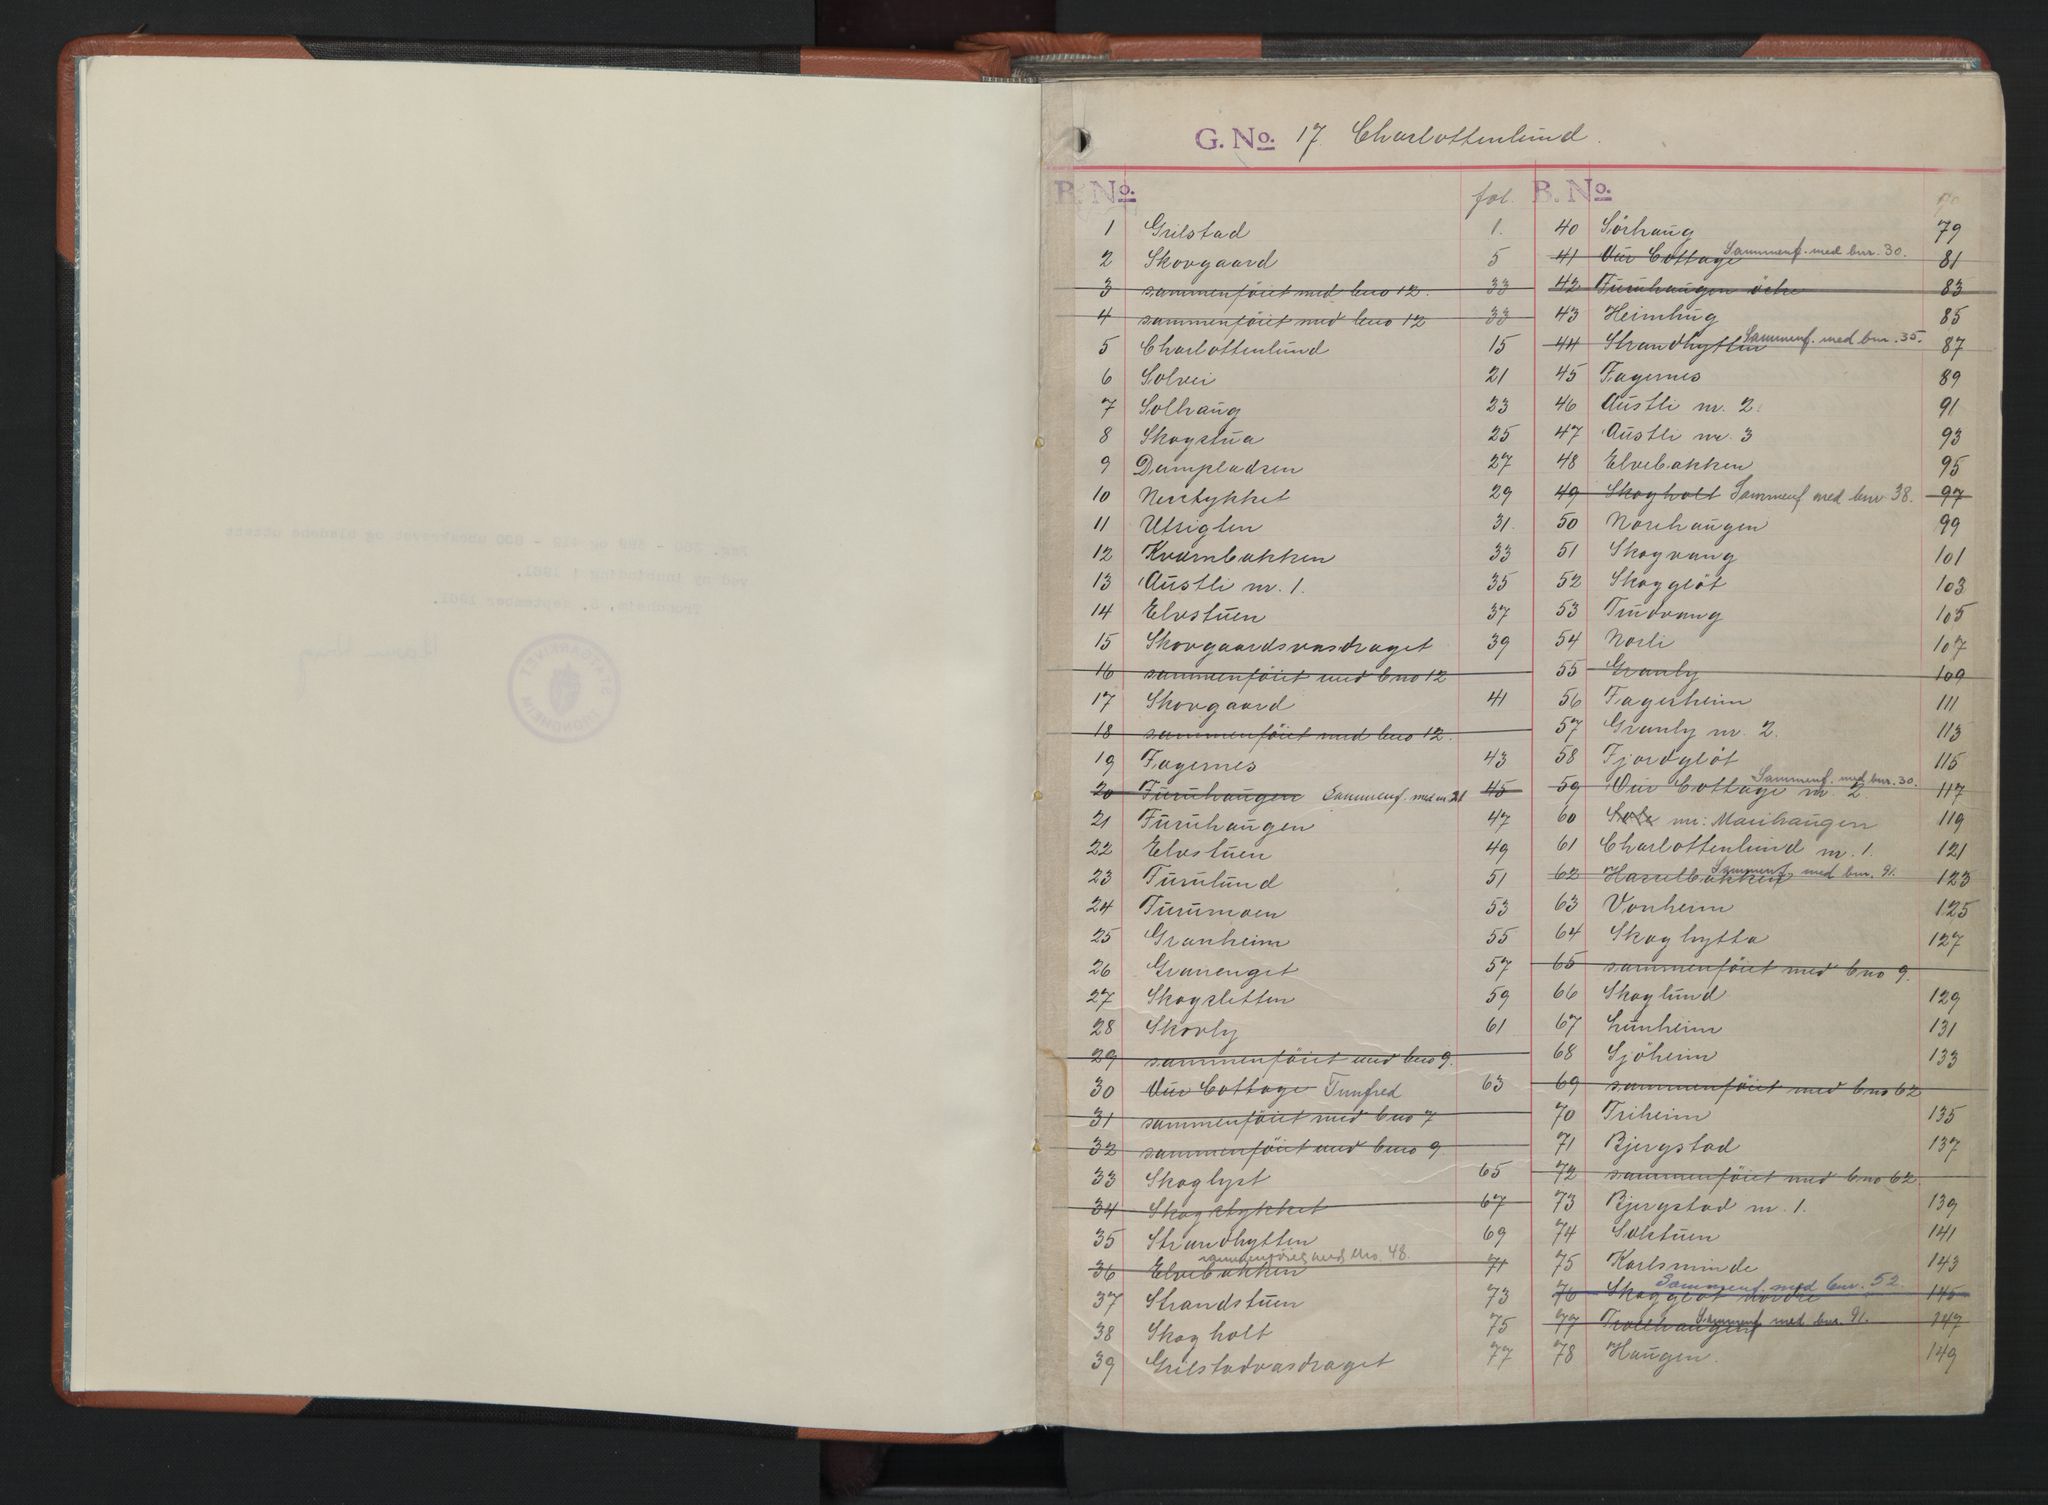 G. No. 17. Charlottenlund.
B. No. fol.
1 Grilstad 1.
2 Skovgaard 5
3 sammenföiet med bno 12. 33
4 sammenföiet med bno 12 33
5 Charlottenlund 15
6 Solvei 21
7 Solhaug 23
8 Skogstua 25
9 Dampladsen 27
10 Nerstykket 29
11 Utsigten 31.
12 Kvarnbakken 33
13 Austli nr. 1. 35
14 Elvstuen 37
15 Skovgaardsvasdraget 39
16 sammenföiet med bno 12
17 Skovgaard 41
18 sammenföiet med bno 12.
19 Fagernes 43
20 Furuhaugen Sammenf. med nr 21 45
21 Furuhaugen 47
22 Elvstuen 49
23 Furulund 51
24 Furumoen 53
25 Granheim 55
26 Granenget 57
27 Skogsletten 59
28 Skovly 61
29 sammenföiet med bno 9.
30 Our Cottage Tunfred 63
31 sammenföiet med bno 7
32 sammenföiet med bno 9
33 Skoglyst 65
34 Skogstykket 67
35 Strandhytten 69
sammenföiet med bno. 48.
36 Elvebakken 71
37 Strandstuen 73
38 Skogholt 75
39 Grilstadvasdraget 77
B. No.
40 Sörhaug 79
41 Our Cottage Sammenf. med bnr. 30. 81
42 Furuhaugen östre 83
43 Heimhug 85
44 Strandhytten Sammenf. med bnr. 35. 87
45 Fagernes 89
46 Austli nr. 2. 91
47 Austli nr. 3 93
48 Elvebakken 95
49 Skogholt Sammenf med bnr 38. 97
50 Norhaugen 99
51 Skogvang 101
52 Skogglöt 103
53 Trudvang 105
54 Norli 107
55 Granly 109
56 Fagerheim 111
57 Granly nr. 2. 113
58 Fjordglöt 115
Sammenf. med bnr. 30.
59 Our Cottage nr. 2 117
60 nr: Marihaugen 119
61 Charlottenlund nr. 1. 121
62 Hasselbakken Sammenf med bnr. 91. 123
63 Vonheim 125
64 Skoghytta 127
65 sammenföiet med bno 9.
66 Skoglund 129
67 Lunheim 131
68 Sjöheim 133
69 sammenföiet med bno 62
70 Triheim 135
71 Bjergstad 137
72 sammenföiet med bno 62.
73 Bjergstad nr. 1. 139
74 Solstuen 141
75 Karlsminde 143
Sammenf. med bnr. 52.
76 Skogglöt nordre 145
77 Trollhaugen Sammenf med bnr. 91. 147
78 Haugen. 149